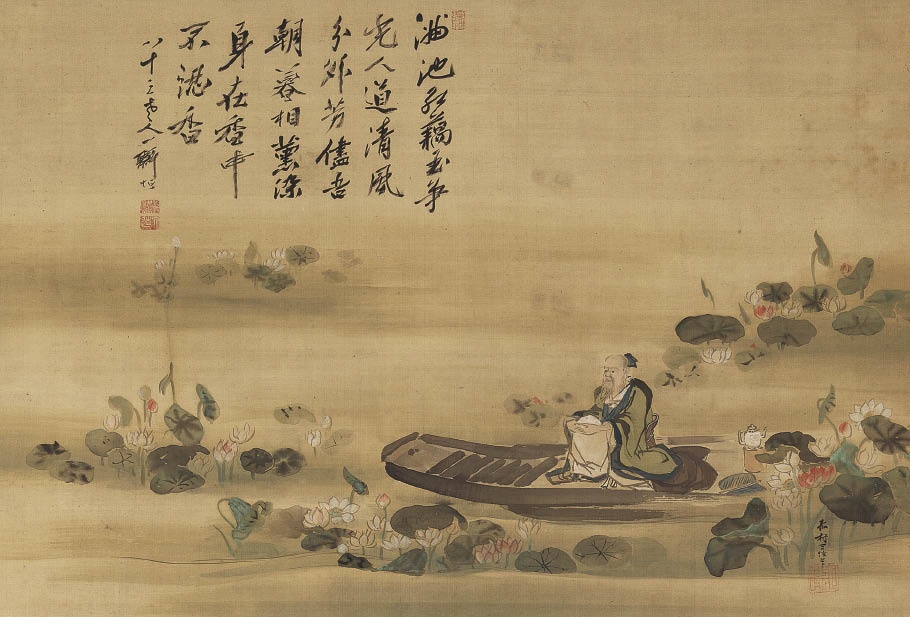 滿池紅藕玉爭
光人道清風
分外芳儘吾
朝暮相薰染
身在香中
不識香
八十三老人一齋坦